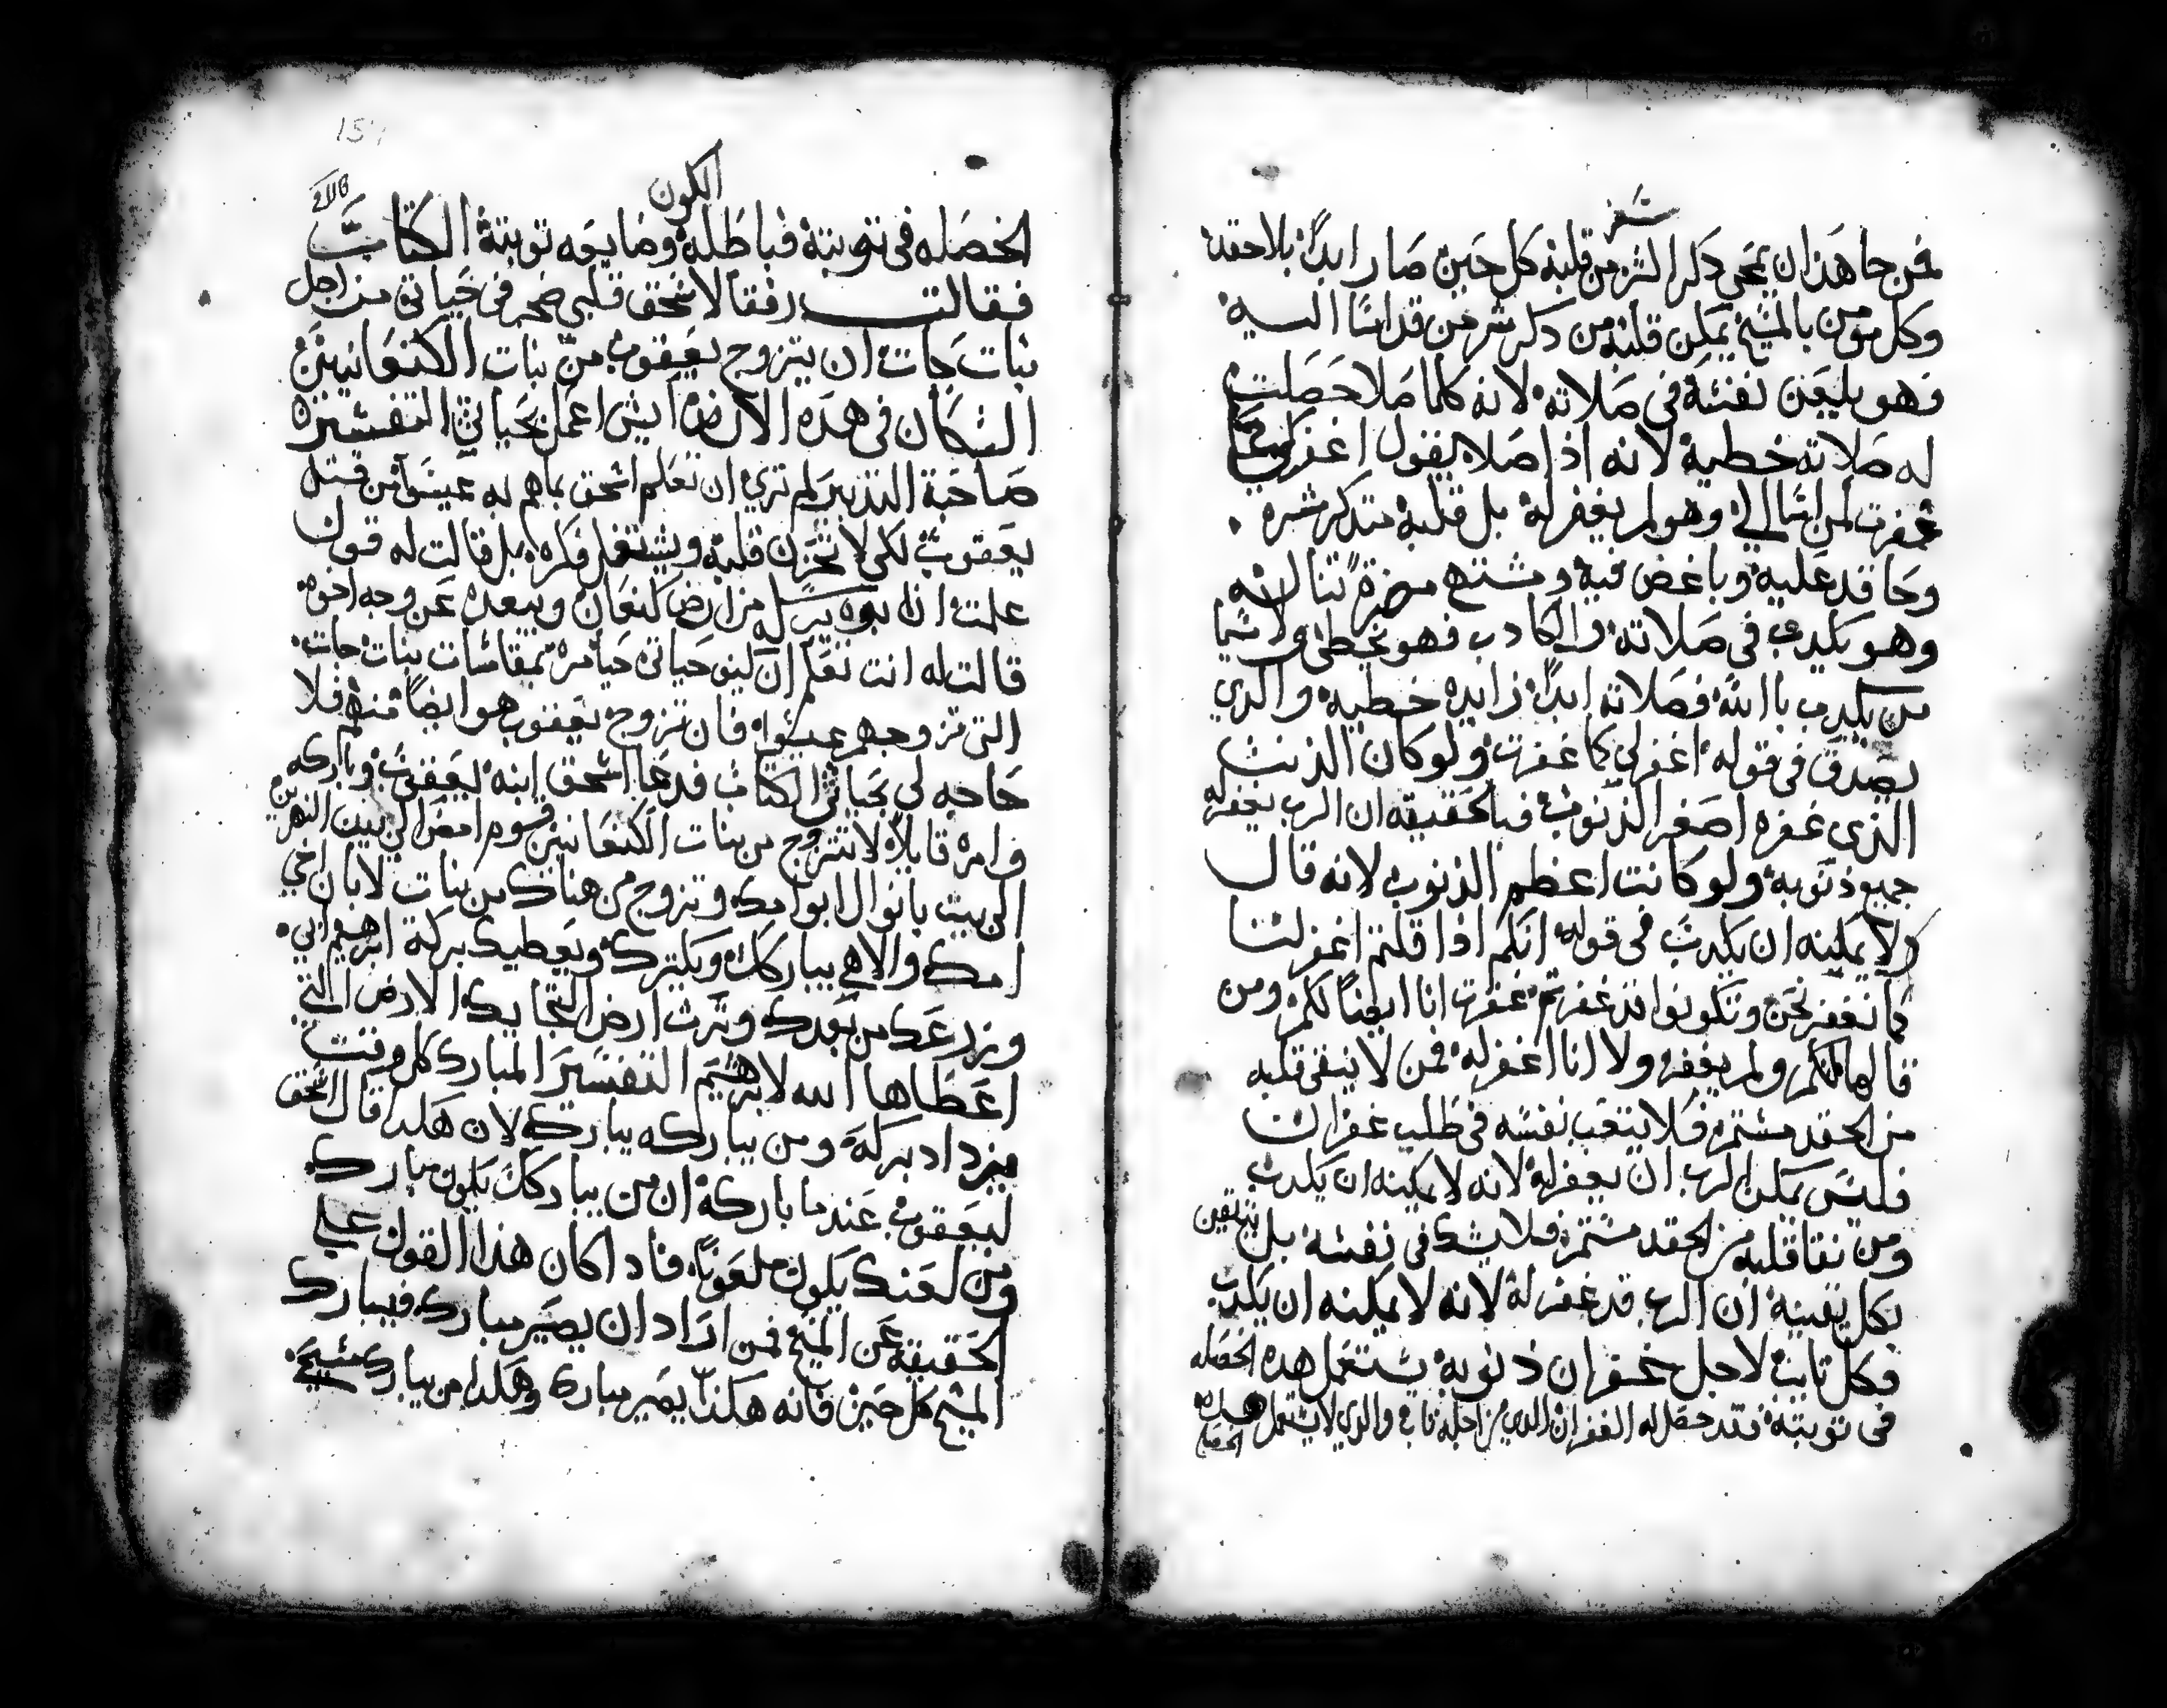 سفر
فمن جاهد ان يمحي دكر الشر من قلبه كل حين صار ابدًا بلا حقد
وكل مومن بالمسيح يمكن قلبه من دكر شر من قد اسا اليه
فهو يلعن نفسه في صلاته لانه كلما صلا حصلت
له صلاته خطية لانه اذا صلا يقول اغفر لي كما
غفرت لمن اسا الي وهو لم يغفر له بل قلبه متدكر شره
وحاقد عليه وباغض فيه ومشتهي مضرة تناله
وهو يكدب في صلاته والكادب فهو يخطي ولا سيما
من يكدب باالله فصلاته ابدًا زايده خطيه والدي
يصدق في قوله اغفر لي كما غفرت ولو كان الذنب
الذي غفره اصغر الذنوب فبالحقيقه ان الرب يغفر له
جميع ذنوبه ولو كانت اعظم الذنوب لانه قال
ولا يمكنه ان يكدب في قوله انكم اذا قلتم اغفر لنا
كما نغفر نحن وتكونوا قد غفرتم غفرت انا ايضًا لكم ومن
قالها منكم ولم يغفر ولا انا اغفر له فمن لا ينقي قلبه
من الحقد مستمر فلا يتعب نفسه في طلب غفران
فليس يمكن الرب ان يغفر له لانه لا يمكنه ان يكدب
ومن نقا قلبه من الحقد مستمر فلا يشك في نفسه بل يتيقن
بكل يقينه ان الرب قد غفر له لانه لا يمكنه ان يكدب
فكل تايب لاجل غفران ذنوبه يستعمل هده الخصله
في توبته فقد حصل له الغفران الدي من اجله تاب والدي لا يستعمل هده
الخصله
الكون
الخصله في توبته فباطله وضايعه توبته الكتاب
فقالت رفقا لاسحق قلبي ضجر في حياتي من اجل
بنات حات ان يتزوج يعقوب من بنات الكنعانيين
السكان في هده الارض ايش اعمل بحياتي التفسير
صاحبة التدبير لم تري ان تعلم اسحق بما هم به عيسوا من قتل
يعقوب لكي لا تحزن قلبه ويشتغل فكره بل قالت له قول
علمت ان ابوه يرسله من ارض كنعان ويبعده عن وجه اخوه
قالت له انت تعلم ان ليو حياتي حياه مره بمقاسات بنات حات
التي تزوجهم عيسوا فان تزوج يعقوب هو ايضًا منهم فلا
حاجه لي بحياتي الكتاب فدعا اسحق ابنه يعقوب وباركه
وامره قايلاً لا تتزوج من بنات الكنعانيين قوم امض الي بين النهرين
الي بيت باتوال ابو امك وتزوج من هناك من بنات لابان اخي
امك والاهي يباركك ويكترك ويعطيك بركة ابرهيم ابي
وزرعك من بعدك وترث ارض التجايك الارض التي
اعطاها الله لابرهيم التفسير المبارك كل وقت
يزداد بركة ومن يباركه يباركه لان هكدا قال اسحق
ليعقوب عندما باركه ان من يباركك يكون مبارك
ومن لعنك يكون ملعونًا فاد اكان هذا القول علي
الحقيقه عن المسيح فمن اراد ان يصير مبارك فيبارك
المسيح كل حين فانه هكذا يصير مبارك وهكدا من يبارك مسيحي